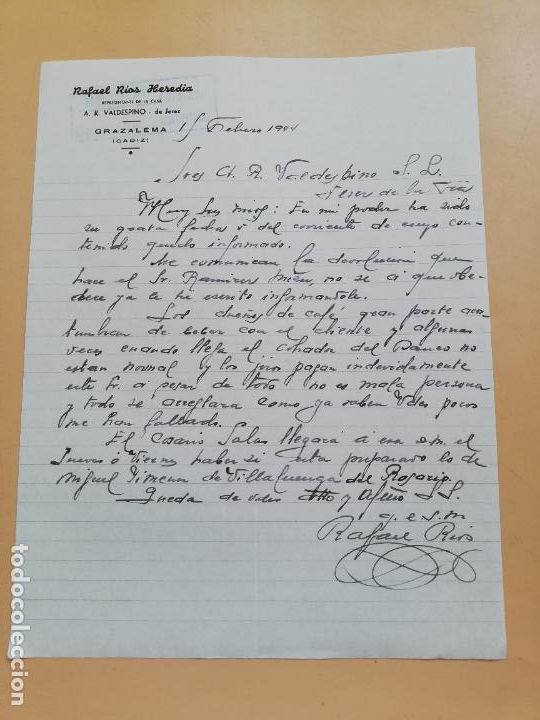 Rafael Rios Heredia
REPRESENTANTE DE LA CASA
A. R. VALDESPINO - de Jerez
GRAZALEMA
(CADIZ)
15 Febrero 1944
Sres A. R. Valdespino S. L.
Jerez de la Fra
Muy Sres mios: En mi poder ha sido
su grata fecha 8 del corriente de cuyo con-
tenido quedo informado.
Me comunican la devolucion que
hace el Sr. Ramirez no se a que obe-
dece ya le he escrito informandole.
Los dueños de café gran parte acos
tumbran de beber con el cliente y algunas
veces cuando llega el cobrador del Banco no
estan normal y los jiros pagan indevidamente
este Sr. a pesar de todo no es mala persona
y todo se arreglara como ya saben Vdes pocos
me han fallado.
El Cosario Salas llegara a esa s.m. el
Jueves ó Viernes haber si esta preparado lo de
Miguel Jimenez de Villaluenga del Rosario.
Queda de Vdes Atto y Affmo SS.
q. e. s. m.
Rafael Rios
todocoleccion